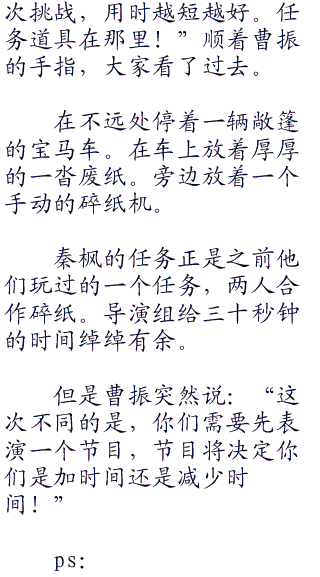 次挑战，用时越短越好。任
务道具在那里！”顺着曹振
的手指，大家看了过去。
在不远处停着一辆敞篷
的宝马车。在车上放着厚厚
的一沓废纸。旁边放着一个
手动的碎纸机。
秦枫的任务正是之前他
们玩过的一个任务，两人合
作碎纸。导演组给三十秒钟
的时间绰绰有余。
但是曹振突然说：“这
次不同的是，你们需要先表
演一个节目，节目将决定你
们是加时间还是减少时
间！”
ps: